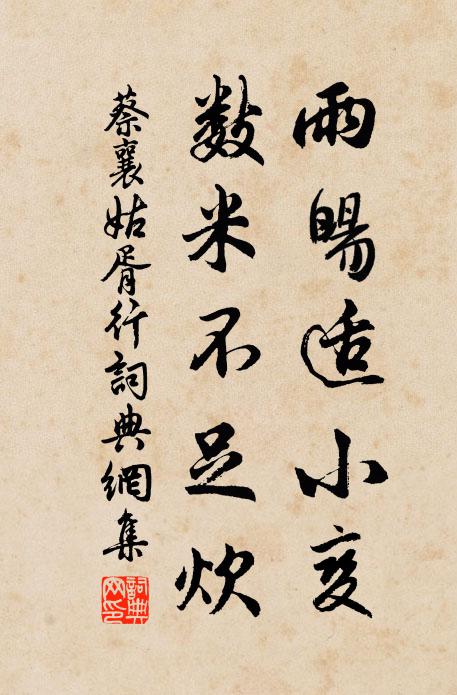 雨暘适小变
数米不足炊
蔡襄姑胥行詞典網集
詞典网印